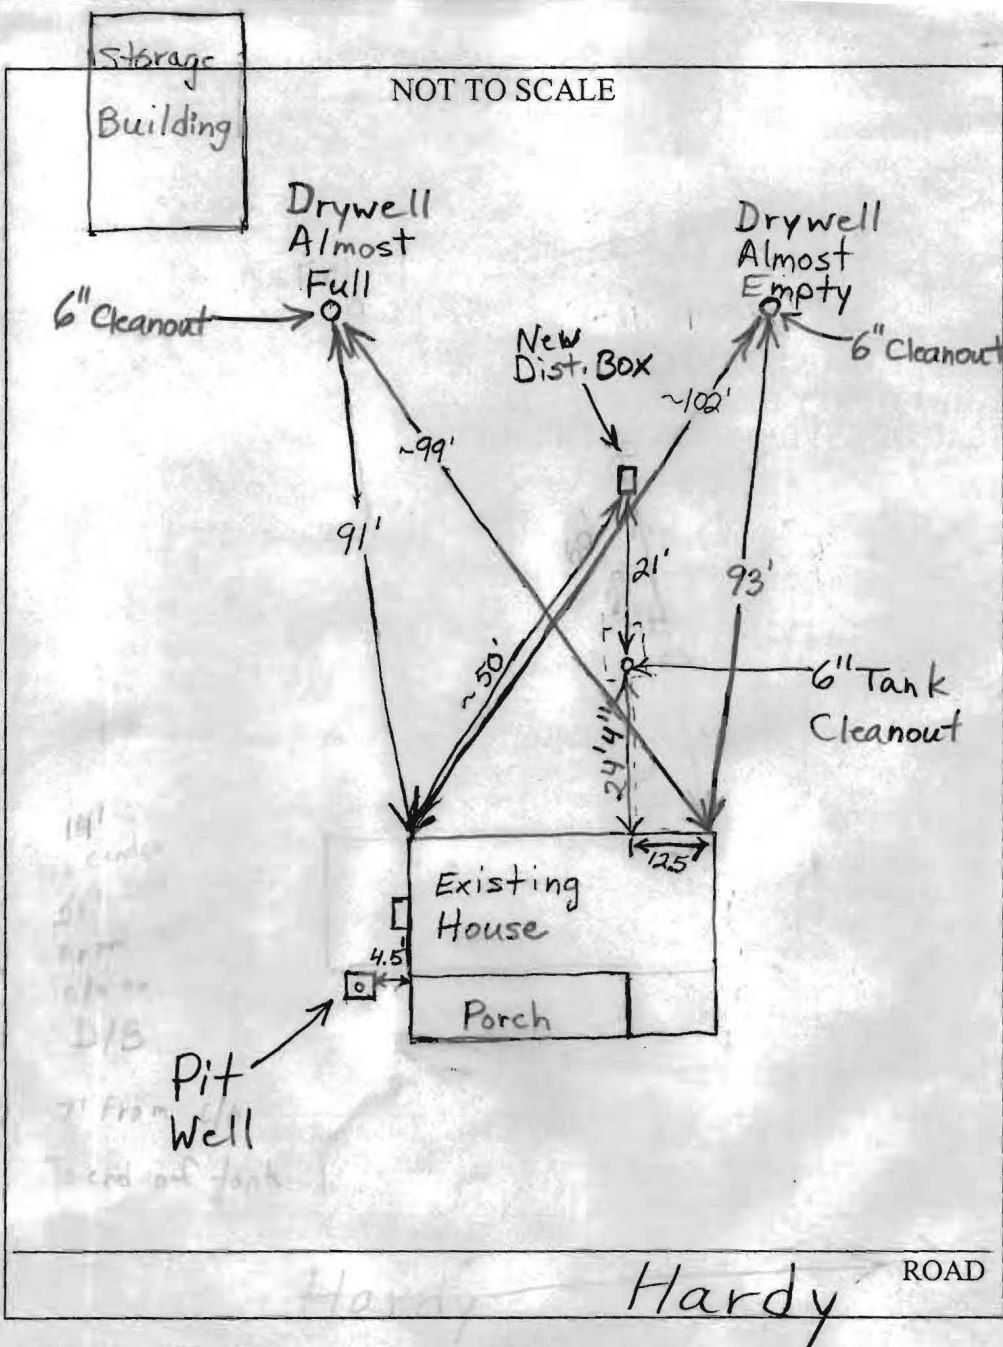 Storage
Building
NOT TO SCALE
Drywell
Almost
Full
Drywell
Almost
Empty
6" Cleanout
6" Cleanout
New
Dist. Box
~102'
~99'
91'
21'
93'
~50'
6" Tank
Cleanout
24'4"
12.5
Existing
House
4.5'
Porch
Pit
Well
14'
D/B
7' From
end of tank
Hardy
Hardy
ROAD